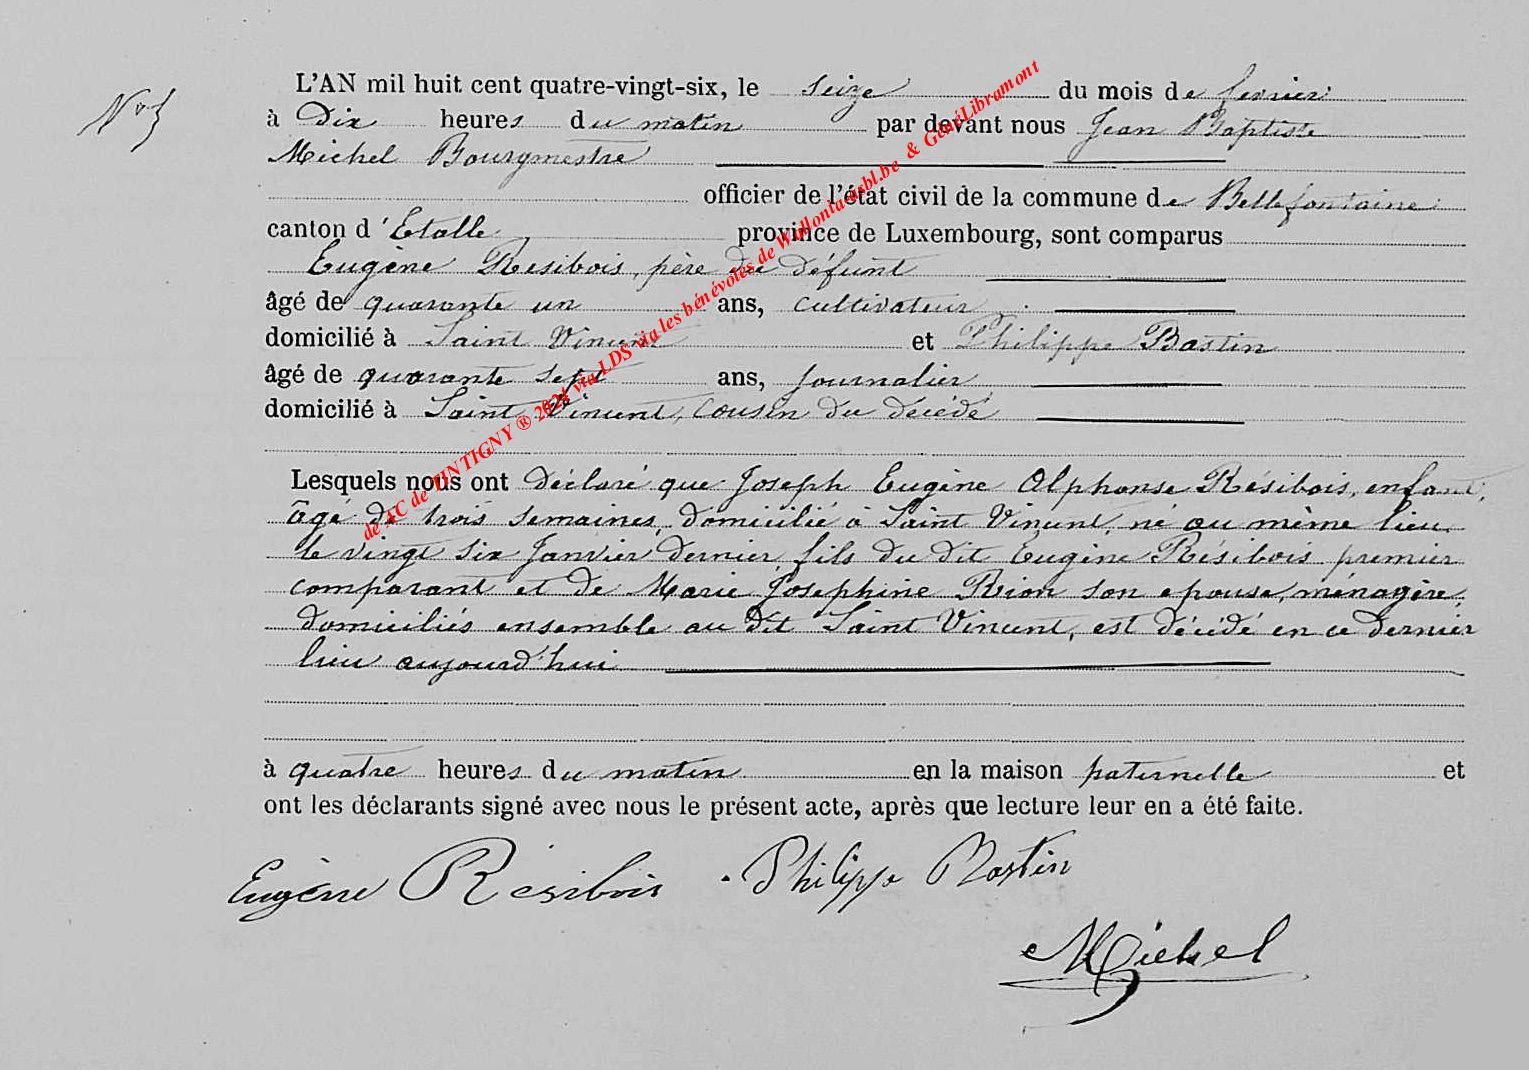 No 3
L'AN mil huit cent quatre-vingt-six, le seize du mois de fevrier
à Dix heures du matin par devant nous Jean Baptiste
Michel Bourgmestre
officier de l'état civil de la commune de Bellefontaine
canton d'Etalle province de Luxembourg, sont comparus
Eugène Résibois, père du défunt
âgé de quarante un ans, cultivateur
domicilié à Saint Vincent et Philippe Bastin
âgé de quarante sept ans, journalier
domicilié à Saint Vincent, cousin du décédé
Lesquels nous ont déclaré que Joseph Eugène Alphonse Résibois, enfant,
âgé de trois semaines, domicilié à Saint Vincent, né au même lieu
le vingt six Janvier dernier, fils du dit Eugène Résibois premier
comparant et de Marie Joséphine Rion son epouse, ménagère,
domiciliés ensemble au dit Saint Vincent, est décédé en ce dernier
lieu aujourd'hui
à quatre heures du matin en la maison paternelle et
ont les déclarants signé avec nous le présent acte, après que lecture leur en a été faite.
Eugène Résibois Philippe Bastin
Michel
de AC de TINTIGNY ® 2024 via LDS via les bénévotes de Wallonticasbl.be & GénéLibramont